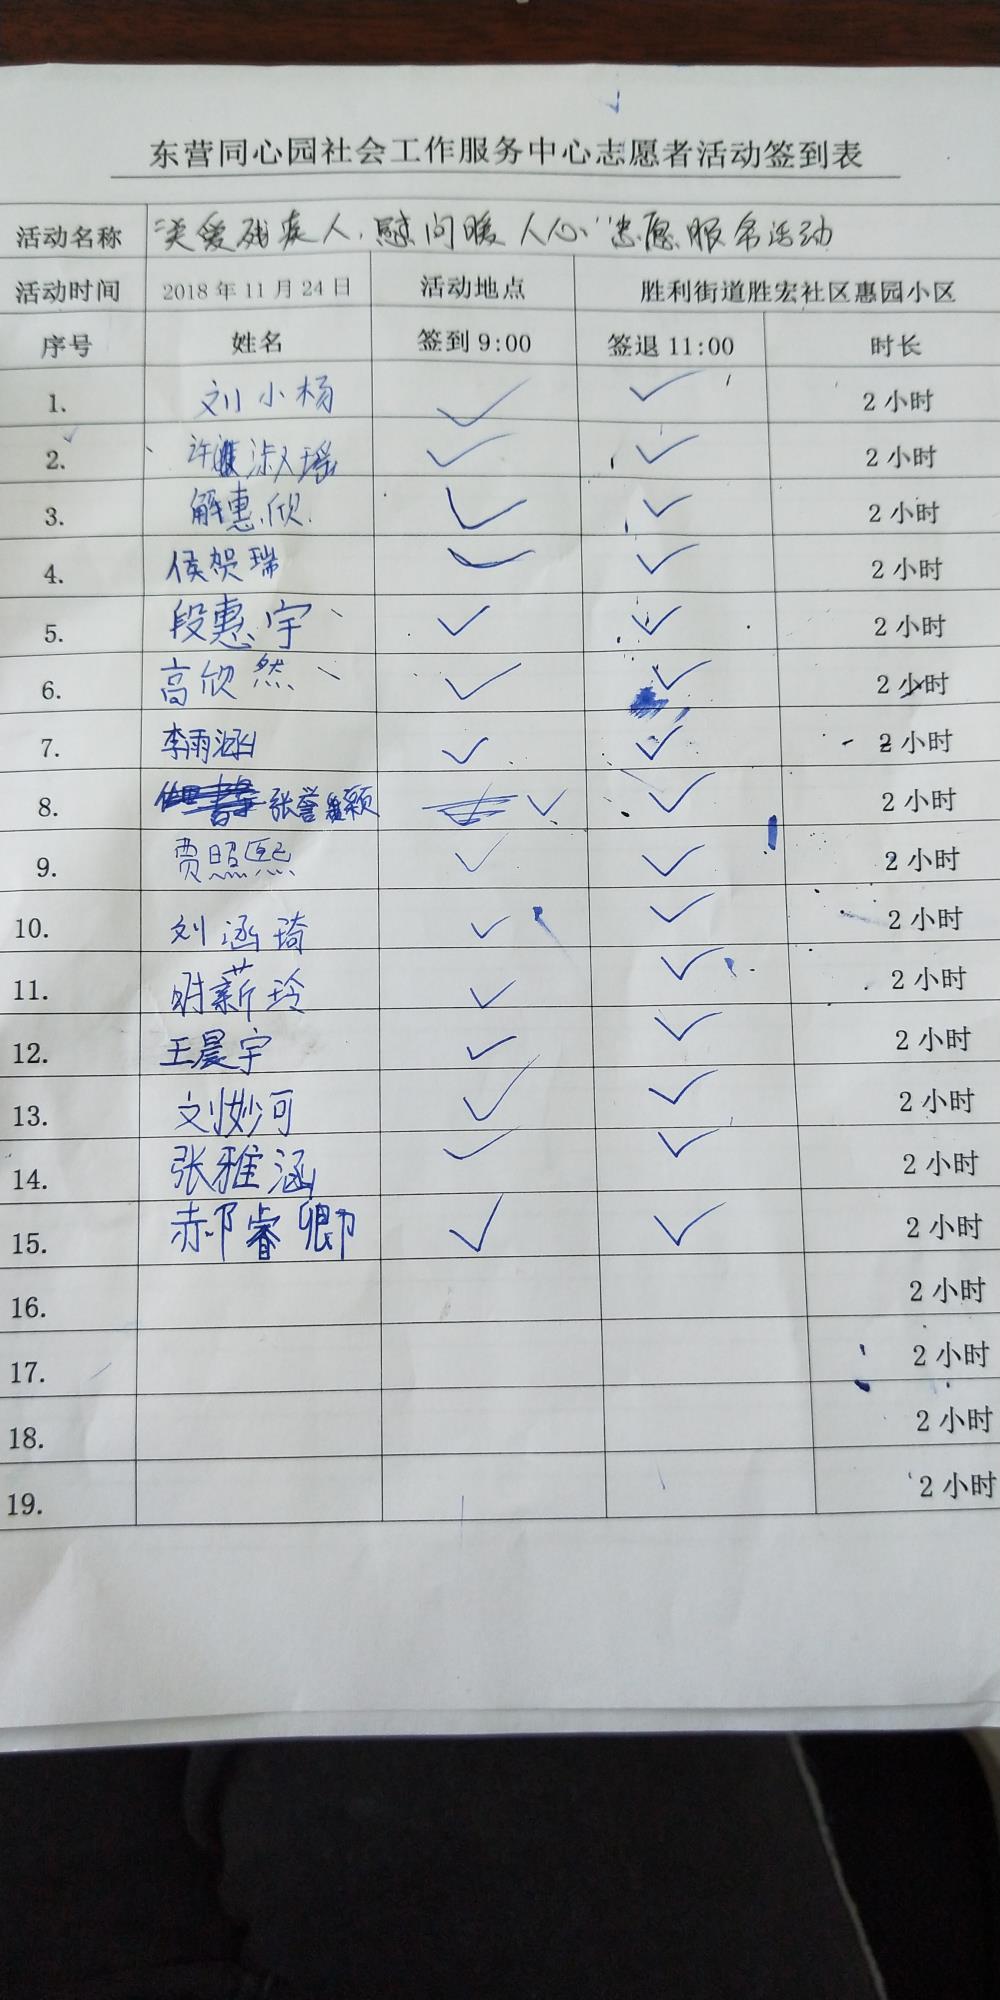 东营同心园社会工作服务中心志愿者活动签到表
活动名称 "关爱残疾人,慰问暖人心"志愿服务活动
活动时间 2018年11月24日 活动地点 胜利街道胜宏社区惠园小区
序号 姓名 签到9:00 签退11:00 时长
1. 刘小杨 ✓ ✓ 2小时
2. 许淑瑶 ✓ ✓ 2小时
3. 解惠欣 ✓ ✓ 2小时
4. 侯贺瑞 ✓ ✓ 2小时
5. 段惠宇 ✓ ✓ 2小时
6. 高欣然 ✓ ✓ 2小时
7. 李雨涵 ✓ ✓ 2小时
8. 张誉颖 ✓ ✓ 2小时
9. 贾照熙 ✓ ✓ 2小时
10. 刘涵琦 ✓ ✓ 2小时
11. 薪玲 ✓ ✓ 2小时
12. 王晨宇 ✓ ✓ 2小时
13. 刘妙河 ✓ ✓ 2小时
14. 张雅涵 ✓ ✓ 2小时
15. 郝睿卿 ✓ ✓ 2小时
16. 2小时
17. 2小时
18. 2小时
19. 2小时